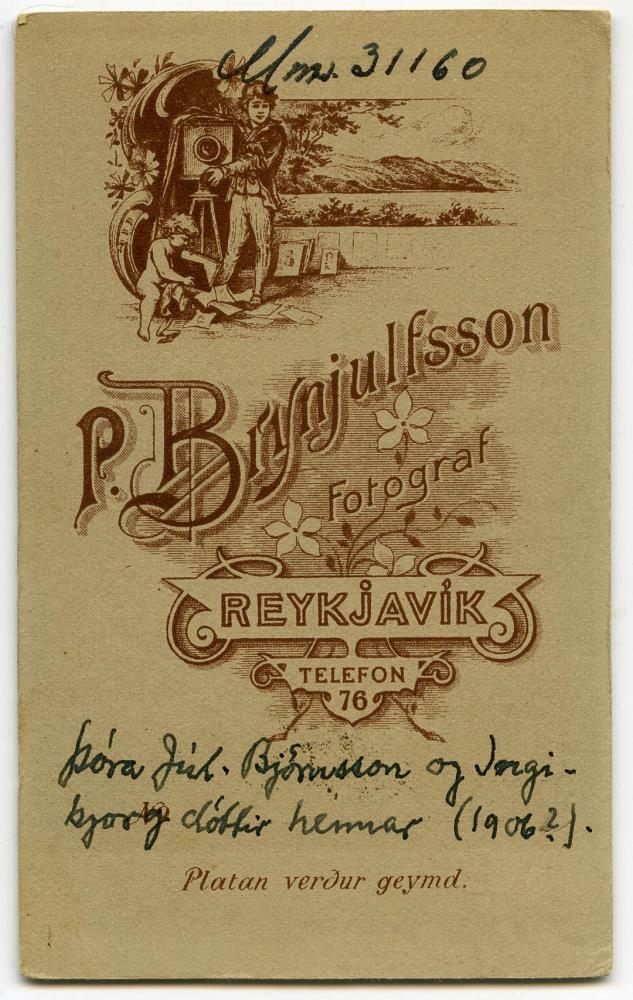 Mms. 31160
P. Brynjulfsson
Fotograf
REYKJAVÍK
TELEFON
76
Þóra Júl. Björnsson og Ingi-
bjorg dóttir hennar (1906?).
No
Platan verður geymd.